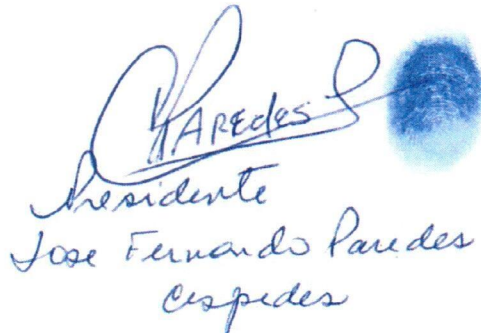 Paredes
Presidente
Jose Fernando Paredes
Cespedes